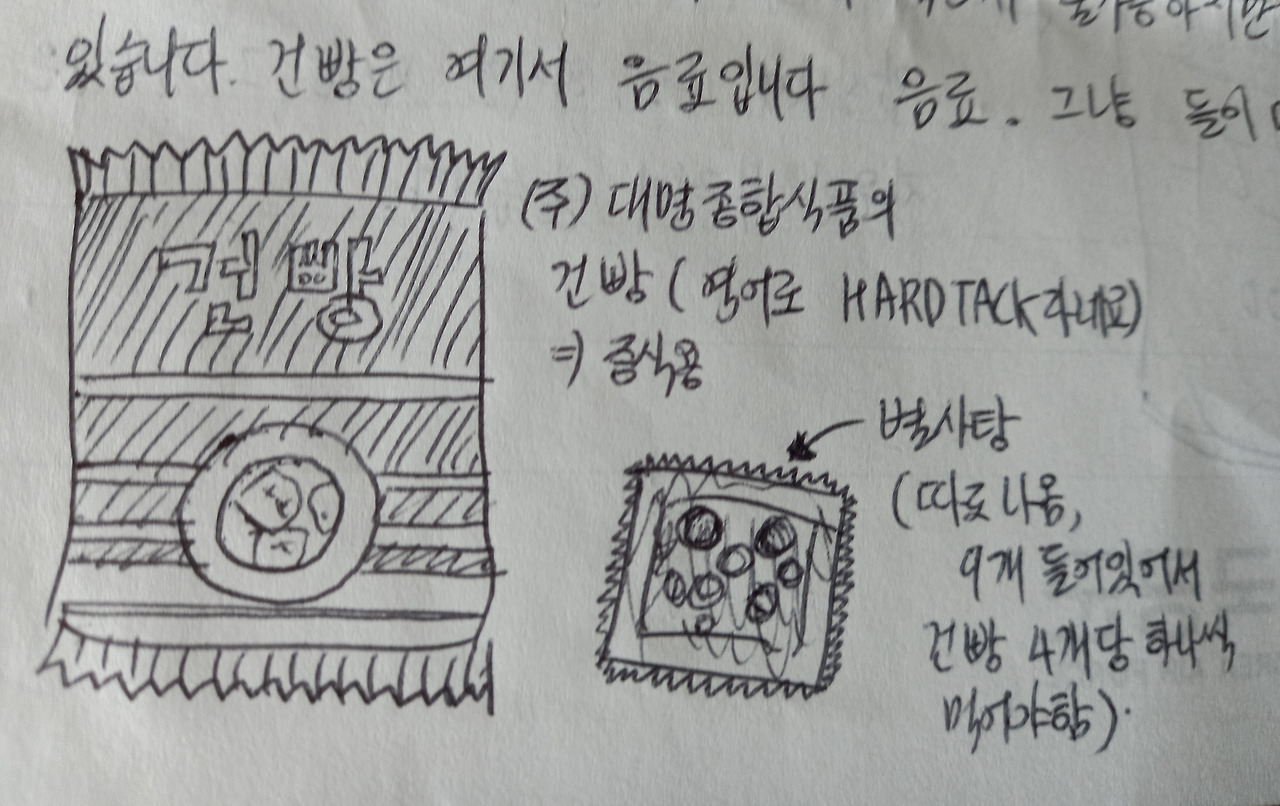 불가능하지만
있습니다. 건빵은 여기서 음료입니다 음료. 그냥 들이
(주) 대명종합식품의
건빵 (영어로 HARDTACK라네요)
⇒ 증식용
별사탕
(따로 나옴,
9개 들어잇어서
건빵 4개당 하나씩
먹어야함).